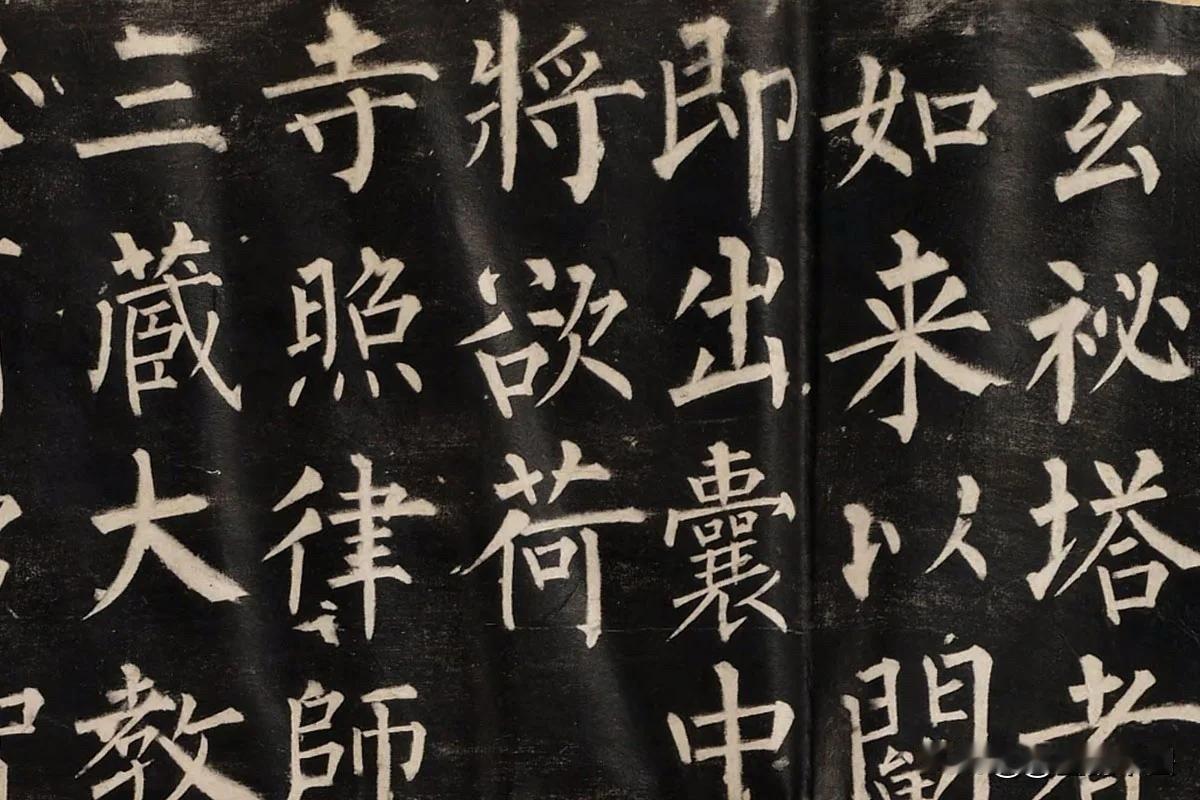 玄祕塔者
如来以闡
即出囊中
將欲荷
寺照律師
三藏大教